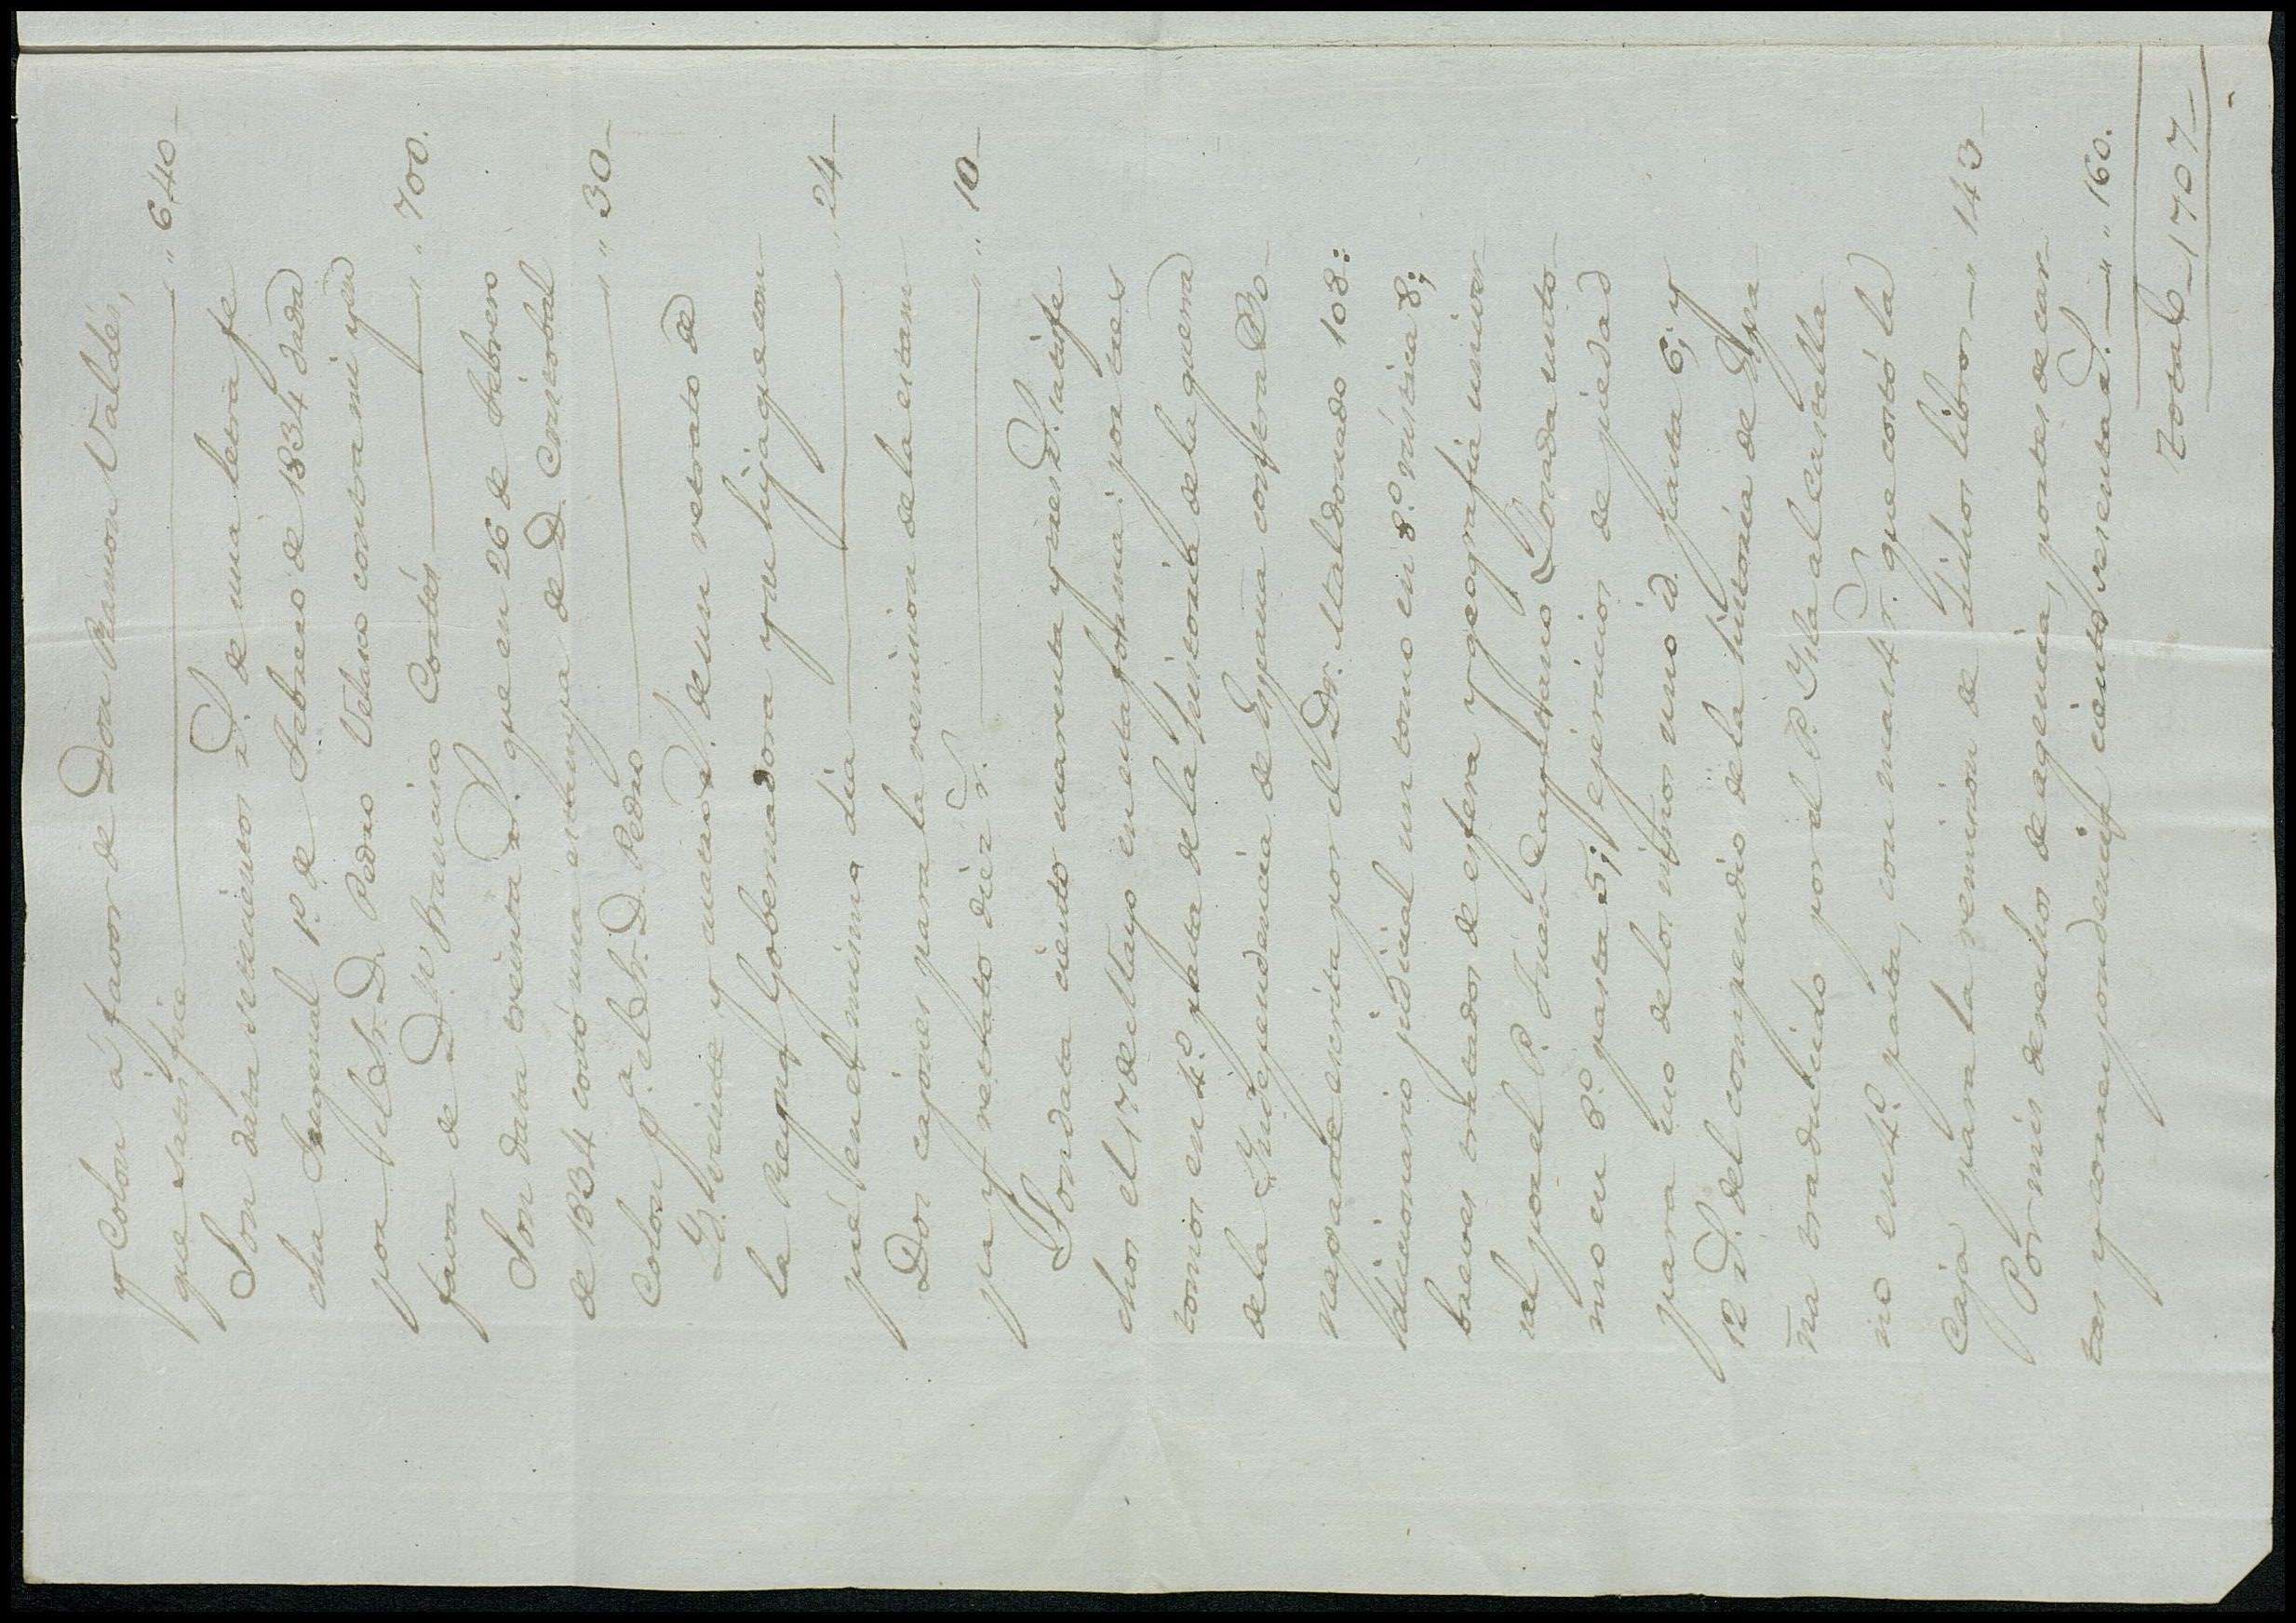 y Colon á favor de Don Ramon Valdés,
que satisfice " 640
Son data setecientos r.s de una letra fe
cha Fregenal 1º. de Febrero de 1834 dada
por el Sr. D. Pedro Velasco contra mi y en
favor de D.n Francisco Cortés " 700.
Son data treinta r.s que en 26 de Febrero
de 1834 costó una estampa de D. Cristobal
Colon p.a el Sr. D. Pedro " 30
Id. veinte y cuatro r.s de un retrato de
la Reyna Gobernadora y su hija que com-
pré en el mismo dia " 24
Dos cajones para la remision de la estam-
pa y retrato diez r.s " 10
Son data ciento cuarenta y tres r.s satisfe
chos el 17 de Mayo en esta forma: por tres
tomos en 4º. pasta de la historia de la guerra
de la Independencia de España contra Bo-
naparte escrita por el Dr. Maldonado 108:
diccionario judicial un tomo en 8º. rústica 8;
breves tratados de esfera y geografia univer-
sal por el P. Juan Cayetano Losada un to-
mo en 8º. pasta 5; ejercicios de piedad
para uso de los niños uno id. pasta 6; y
12 r.s del compendio de la historia de Espa
ña traducido por el P. Isla al castella-
no en 4º. pasta, con mas 4 r.s que costó la
Caja para la remision de dichos libros " 143
Por mis derechos de agencia, portes de car-
tas y correspondencia ciento sesenta r.s " 160.
Total 1707